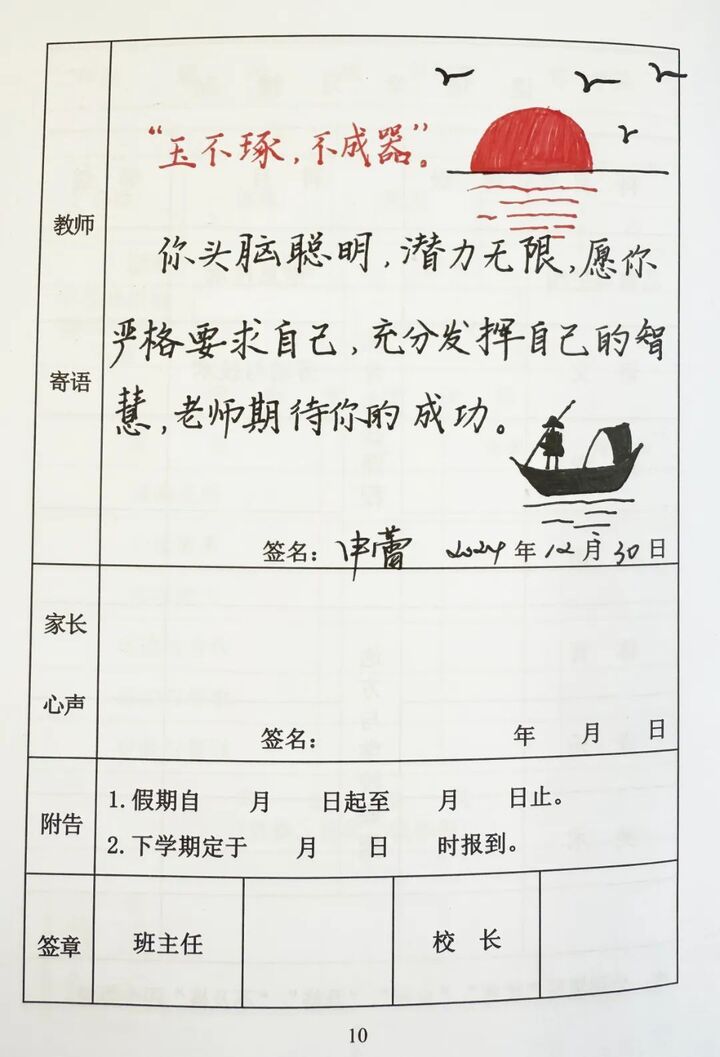 “玉不琢,不成器”。
教师
寄语
你头脑聪明,潜力无限,愿你
严格要求自己,充分发挥自己的智
慧,老师期待你的成功。
签名: 申蕾 2024年12月30日
家长
心声
签名: 年 月 日
附告
1.假期自 月 日起至 月 日止。
2.下学期定于 月 日 时报到。
签章 班主任 校 长
10